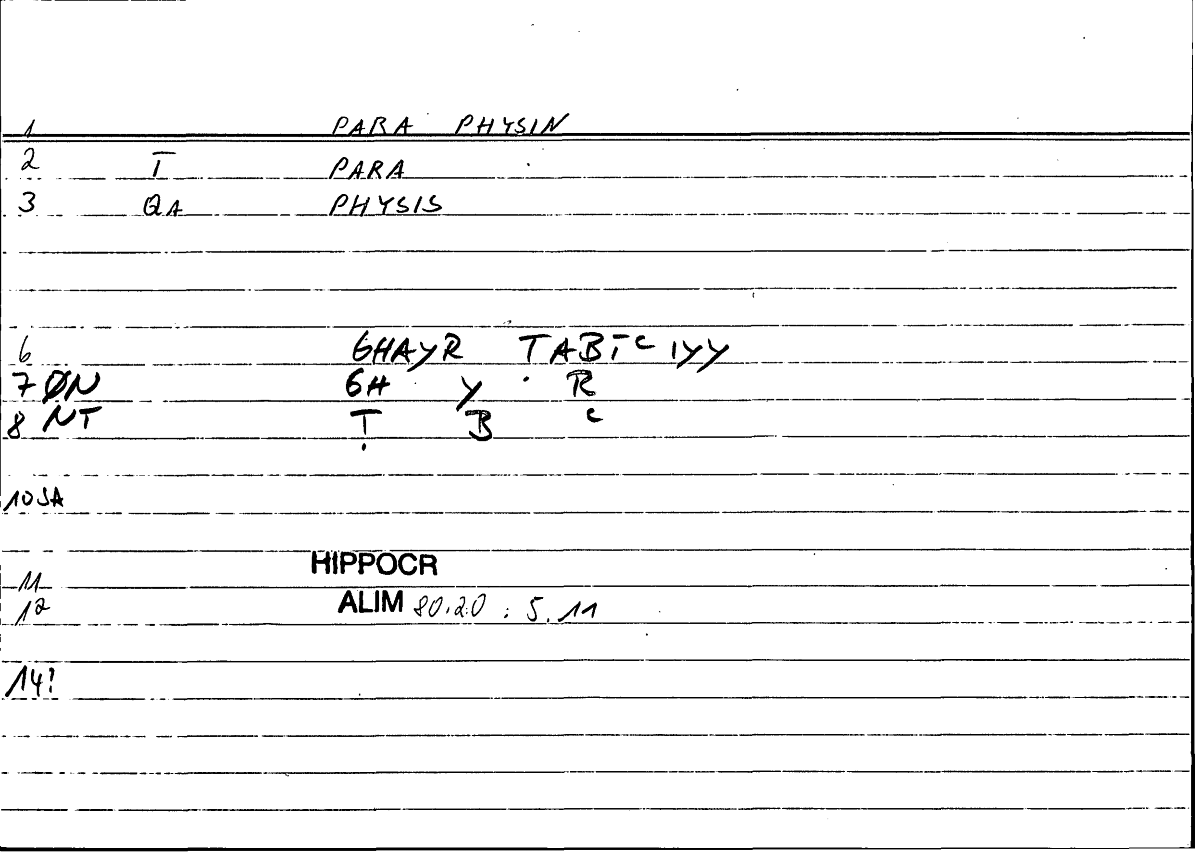 1 PARA PHYSIN
2 T PARA
3 QA PHYSIS
6 GHAYR TABĪᶜIYY
7 ØN GH Y R
8 NT Ṭ B ᶜ
10 SA
11 HIPPOCR
12 ALIM 80.20 : 5.11
14?